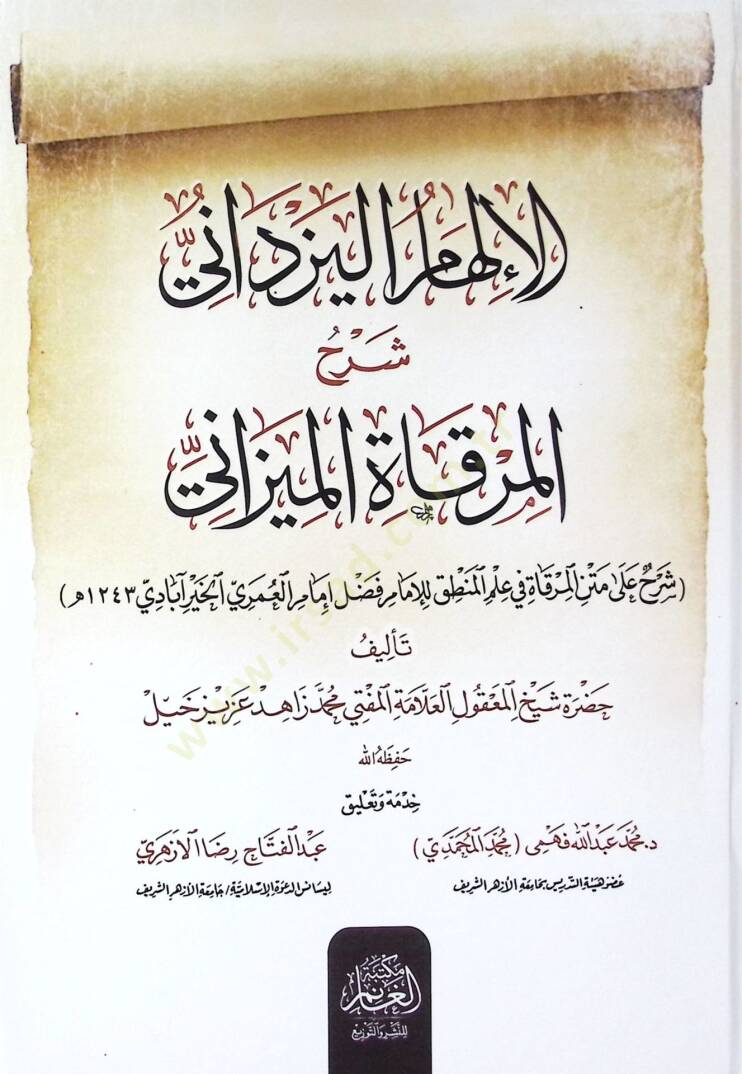 الإلهامُ اليزدانيُّ
شَرْحُ
المِرْقَاةِ المِيزَانِيِّ
(شَرْحٌ عَلَى مَتْنِ المِرْقَاةِ فِي عِلْمِ المَنْطِقِ لِلإِمَامِ فَضْل إِمَامِ العُمَرِيّ الخَيْرِ آبَادِيّ ١٢٤٣هـ)
تَأليفُ
حَضْرَة شَيْخِ المَعْقُولِ العَلَّامَةِ المُفْتِي مُحَمَّد زَاهِد عَزِيز خَيْل
حَفِظَهُ الله
خِدْمَة وَتَعْلِيق
د. مُحَمَّد عَبْدُ الله فَهْمِي (مُحَمَّد المُحَمَّدِيّ)
عَبْدُ الفَتَّاحِ رِضَا الأَزْهَرِيّ
عُضْو هَيْئَة التَّدْرِيسِ بِجَامِعَةِ الأَزْهَرِ الشَّرِيفِ
لِيسَانس الدَّعْوَةِ الإِسْلَامِيَّة / جَامِعَة الأَزْهَرِ الشَّرِيفِ
مَكْتَبَة
الغَانِم
لِلنَّشْرِ وَالتَّوْزِيعِ